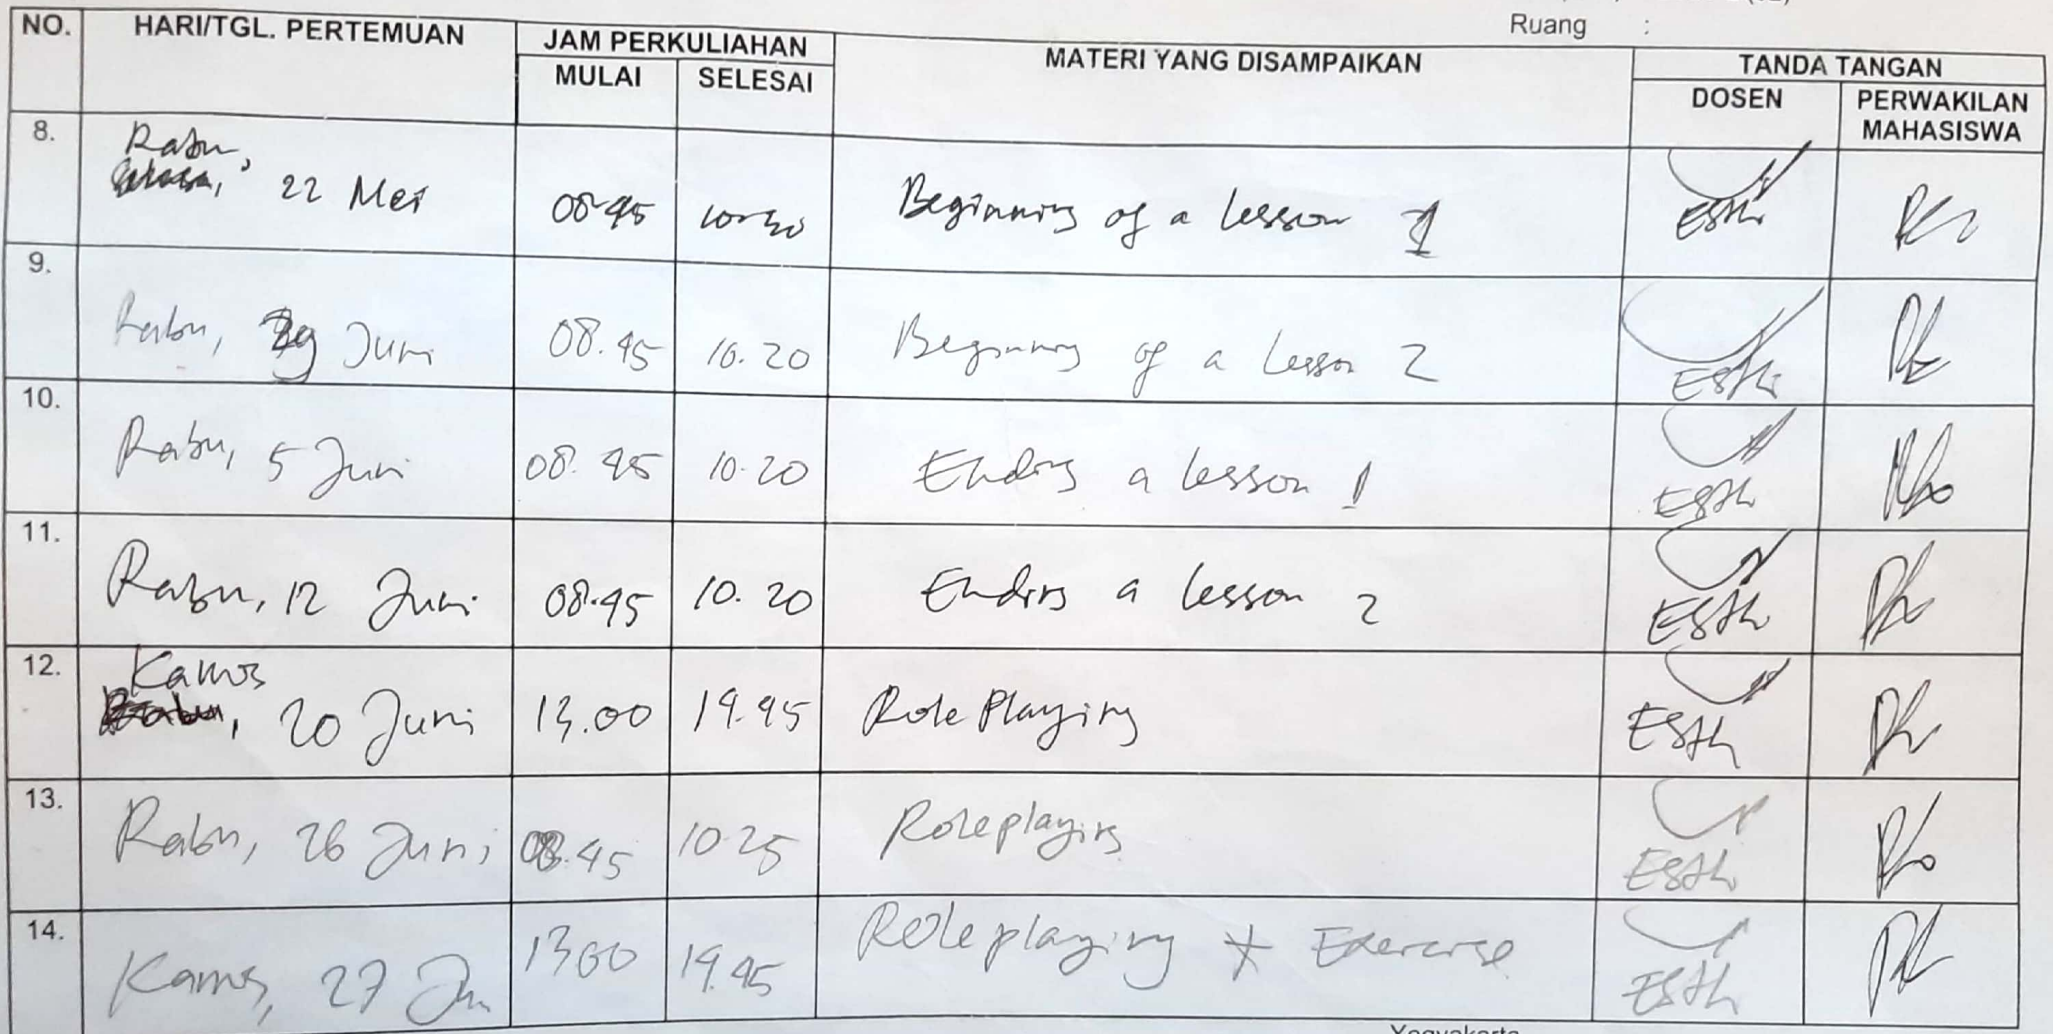 Ruang :
NO. HARI/TGL. PERTEMUAN JAM PERKULIAHAN MATERI YANG DISAMPAIKAN TANDA TANGAN
MULAI SELESAI DOSEN PERWAKILAN MAHASISWA
8. Rabu, 22 Mei 08.45 Beginning of a lesson 1
9. Rabu, 29 Juni 08.45 10.20 Beginning of a lesson 2
10. Rabu, 5 Juni 08.45 10.20 Ending a lesson 1
11. Rabu, 12 Juni 08.45 10.20 Ending a lesson 2
12. Kamis, 20 Juni 13.00 14.45 Role Playing
13. Rabu, 26 Juni 08.45 10.25 Roleplaying
14. Kamis, 27 Jun 13.00 14.45 Roleplaying + Exercise
Yogyakarta